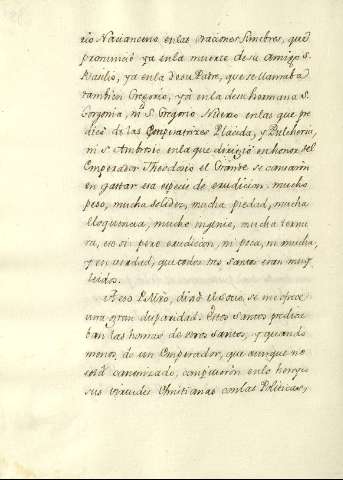 rio Nacianceno en las oraciones funebres, que
pronunció ya en la muerte de su Amigo S.
Basilio, ya en la de su Padre, que se llamaba
tambien Gregorio, ya en la de su hermana S.
Gorgonia, ni S. Gregorio Niseno en las que pre
dicó de las Emperatrizes Placida, y Pulcheria,
ni S. Ambrosio en la que dirigió en honor del
Emperador Theodosio el Grande se cansaron
en gastar esta especie de erudicion. mucho
peso, mucha solidez, mucha piedad, mucha
eloquencia, mucho ingenio, mucha ternu
ra, eso si: pero erudicion, ni poca, ni mucha,
y en verdad, que todos tres santos eran muy
leidos.
A eso P. Mro, dixo el socio, se me ofrece
una gran disparidad. Estos Santos predica
ban las honras de otros Santos, y quando
menos, de un Emperador, que aunque no
está canonizado, compitieron en lo heroyco
sus virtudes Christianas con las Politicas,